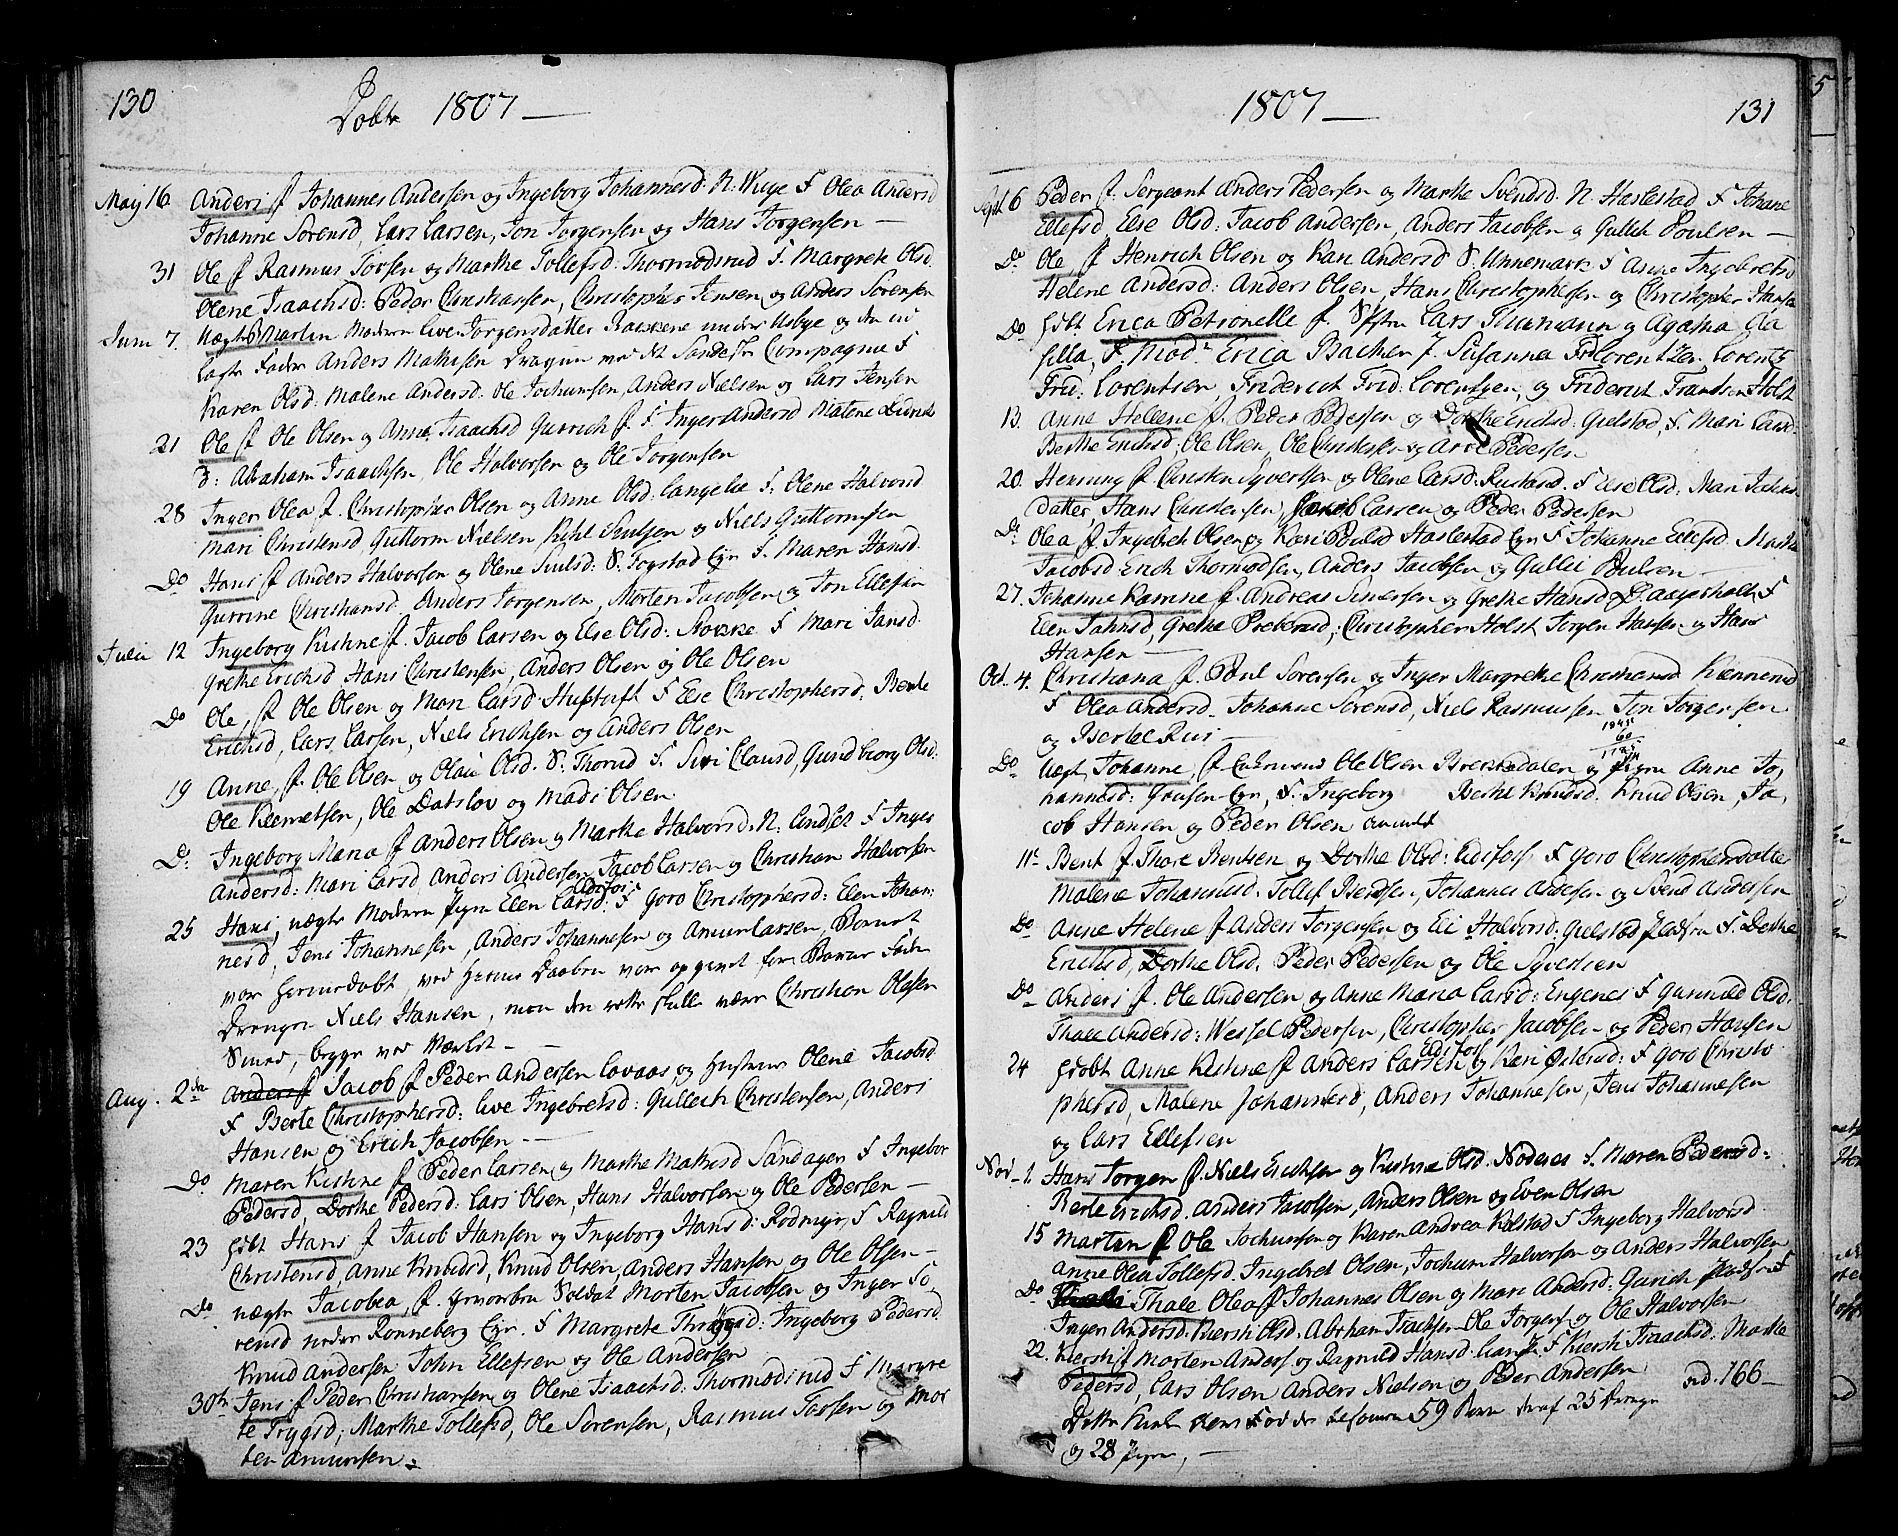 130
Dobte 1807 —
May 16 Anders f Johannes Andersen og Ingeborg Johannesd: N: F Olea Andersd
Johanne Sörensd, Lars Larsen, Jon Jörgensen og Hans Jörgensen —
31 Ole f Rasmus Torsen og Marthe Tollefsd: Thormodsrud F: Margrete Olsd
Olene Isaachsd: Peder Christiansen, Christopher Jensen og Anders Sörensen
Juni 7. Martin Moderen Live Jörgensdatter under og den ud
lagte Fader Anders Mathisen Dragun ved det Compagnie F
Karen Olsd: Malene Andersd: Ole Jochumsen, Anders Nielsen og Lars Jensen
21 Ole f Ole Olsen og Anne Isaachsd Gurrich f F Inger Andersd Malene
d: Abraham Isaachsen, Ole Halvorsen og Ole Jörgensen
28 Inger Olea f. Christopher Olsen og Anne Olsd: Langelie F: Olene Halvorsd
Mari Christensd, Guttorm Nielsen og Niels Guttormsen
Do Hans f Anders Halvorsen og Olene S. Fogstad Eyn F. Maren Hansd
Gurrine Christiansd. Anders Jörgensen, Morten Jacobsen og Jon Ellefsen
Julii 12 Ingeborg Kistine f Jacob Larsen og Else Olsd: F Mari Jansd.
Grethe Erichsd Hans Christensen, Anders Olsen og Ole Olsen
Do Ole, f Ole Olsen og Mari Larsd F Else Christophersd, Berte
Erichsd, Lars Larsen, Niels Erichsen og Anders Olsen
19 Anne, f. Ole Olsen og Olai Olsd. S. Thorud F. Siri Clausd, Gundborg Olsd:
Ole Klemetsen, Ole og Mads Olsen
Do Ingeborg Maria f Anders Olsen og Marthe Halvorsd. N: F Inger
Andersd: Mari Larsd Anders Andersen Jacob Larsen og Christian Halvorsen
25 Hans, uægte Moderen Pigen Elen Larsd: Eidsfos F Goro Christophersd: Elen Johan
nesd, Jens Johannesen, Anders Johannesen og Amun Larsen, Barnet
var hjemedøbt, ved hjemme Daaben var opgivet for Barne Fader
Drengen Niels Hansen, men den rette skulle være Christian Olesen
—
Aug. 2den Anders f Jacob f Peder Andersen Lovaas og Hustrue Olene Jacobsd
F Berte Christophersd: Live Ingebretsd: Gullech Christensen, Anders
Hansen og Erich Jacobsen —
Do Maren Kistine f Peder Larsen og Marthe Mathisd Sandager F Ingebor
Pedersd, Dorthe Pedersd: Lars Olsen, Hans Halvorsen og Ole Pedersen —
23 Hans f Jacob Hansen og Ingeborg Hansd: Rodmyr, F Ragnild
Christensd, Anne Knudsd, Knud Olsen, Anders Hansen og Ole Olsen —
Do uægte Jacobea, f. Soldat Morten Jacobsen og Inger Sö
rensd under Ronneberg Eyn. F Margrete Ingeborg Pedersd
Knud Andersen John Ellefsen og Ole Andersen
30te Jens f Peder Christiansen og Olene Isaachsd: Thormodsrud F Margre
te Trygsd; Marthe Tollefsd, Ole Sörensen, Rasmus Torsen og Mor
ten Amunsen.
1807 — 131
Sept 6 Peder f. Sergeant Anders Pedersen og Marthe Svendsd. N. Haslestad F Johane
Ellefsd, Else Olsd: Jacob Andersen, Anders Jacobsen og Gullich Poulsen —
Do Ole, f Henrich Olsen og Kari Andersd S. Unnemark F Anne Ingebretsd
Helene Andersd: Anders Olsen, Hans Christophersen og Christopher Hansen
Do Erica Petronelle f. Lars Thurmann og Agatha
F: Mad: Erica Backer J. Susanna Frd Lorentzen. Lorentz
Frid: Lorentsen, Friderich Frid: Lorentzen, og Friderich Frandsen Holst
13. Anne Hellene f. Peder Pedersen og Dorthe Erichsd: Gulstad, F. Mari Larsd:
Berthe Erichsd, Ole Olsen, Ole Christensen og Arve Pedersen
20. Henning f Christen Syvertsen og Olene Larsd: Rustand. F Else Olsd: Mari Johns
datter, Hans Christensen, Jacob Larsen og Peder Pedersen
Do Olea f Ingebret Olsen og Kari Haslestad Eyn F Johanne Ellefsd. Marthe
Jacobsd Erich Thormodsen, Anders Jacobsen og Gullich Poulsen —
27. Johanne Karrine f. Andreas og Grethe Hansd F
Elen Johnsd, Grethe Prebensd: Christopher Holst Jörgen Hansen og Hans
Hansen —
Oct. 4. Christiana f. Poul Sörensen og Inger Margrethe Christiansd
F Olea Andersd. Johanne Sörensd, Niels Rasmussen Jon Jörgensen
og Bertel Riis —
Do Uægt. Johanne, f Ole Olsen Brekkedalen og Pigen Anne Jo,
hannesd: F. Ingeborg Berthe Knudsd. Knud Olsen, Ja,
cob Hansen og Peder Olsen
11te Bent f Thore Bentsen og Dorthe Olsd: Eidsfos F Goro Christophersdatter
Malene Johannesd. Tollef Bentsen, Johannes og Svend Andersen
Do Anne Helene f Anders Jörgensen og Eli Halvorsd: Gulstad pladsen F. Dorthe
Erichsd, Dorthe Olsd. Peder Pedersen og Ole Syversen
Do Anders f. Ole Andersen og Anne Maria Larsd: Engenes F Gunnild Olsd.
Thale Andersd: Wessel Pedersen, Christopher Jacobsen og Peder Hansen
24 Anne Kistine f Anders Larsen Eidsfos og Kari F Goro Christo
phersd, Malene Johannesd, Anders Johannesen, Jens Johannesen
og Lars Ellefsen
Nov. 1. Hans Jörgen f. Niels Erichsen og Kistine Olsd. F. Maren Pedersd:
Berte Erichsd. Anders Jacobsen, Anders Olsen og Even Olsen
15 Morten f Ole Jochumsen og Karen Andrea Kolstad F Ingeborg Halvorsd.
Anne Olea Tollefsd. Ingebret Olsen, Jochum Halvorsen og Anders Halvorsen
Do Thale Olea f Johannes Olsen og Mari Andersd: Gurich pladsen F
Inger Andersd. Kiersti Olsd. Abraham Isachsen Ole Jörgens og Ole Halvorsen
22. Kiersti f Morten Anders. og Ragnild Hansd. F Kiersti Isaachsd: Marthe
Pedersd, Lars Olsen Anders Nielsen og Peder Andersen
59 Börn deraf 25 Drenge
og 28 Piger, — 166 —